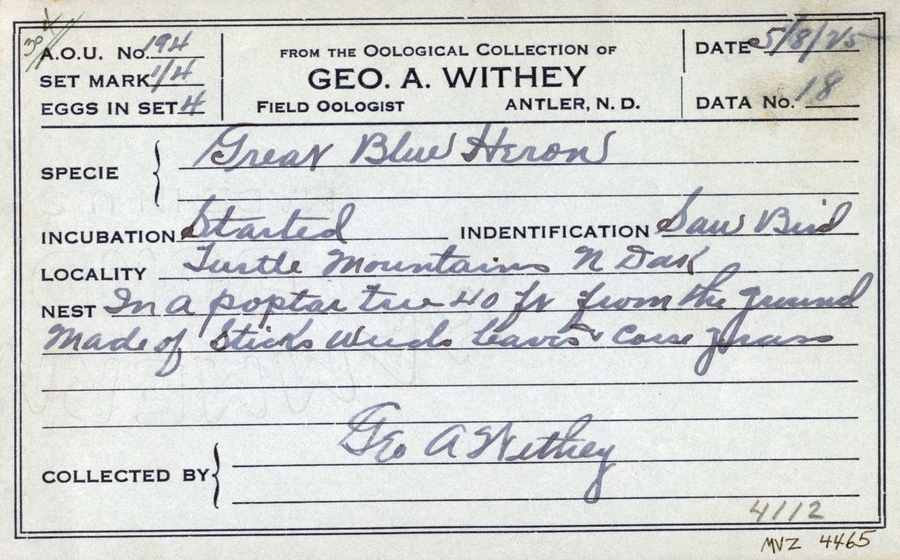 A.O.U. No. 194
SET MARK 1/4
EGGS IN SET 4
FROM THE OOLOGICAL COLLECTION OF
GEO. A. WITHEY
FIELD OOLOGIST ANTLER, N. D.
DATE 5/8/25
DATA No. 18
SPECIE Great Blue Heron
INCUBATION Started INDENTIFICATION Saw Bird
LOCALITY Turtle Mountains N Dak
NEST In a poptar tree 40 ft from the ground
Made of Sticks weeds leaves & Corse grass
COLLECTED BY Geo A Withey
4112
MVZ 4465